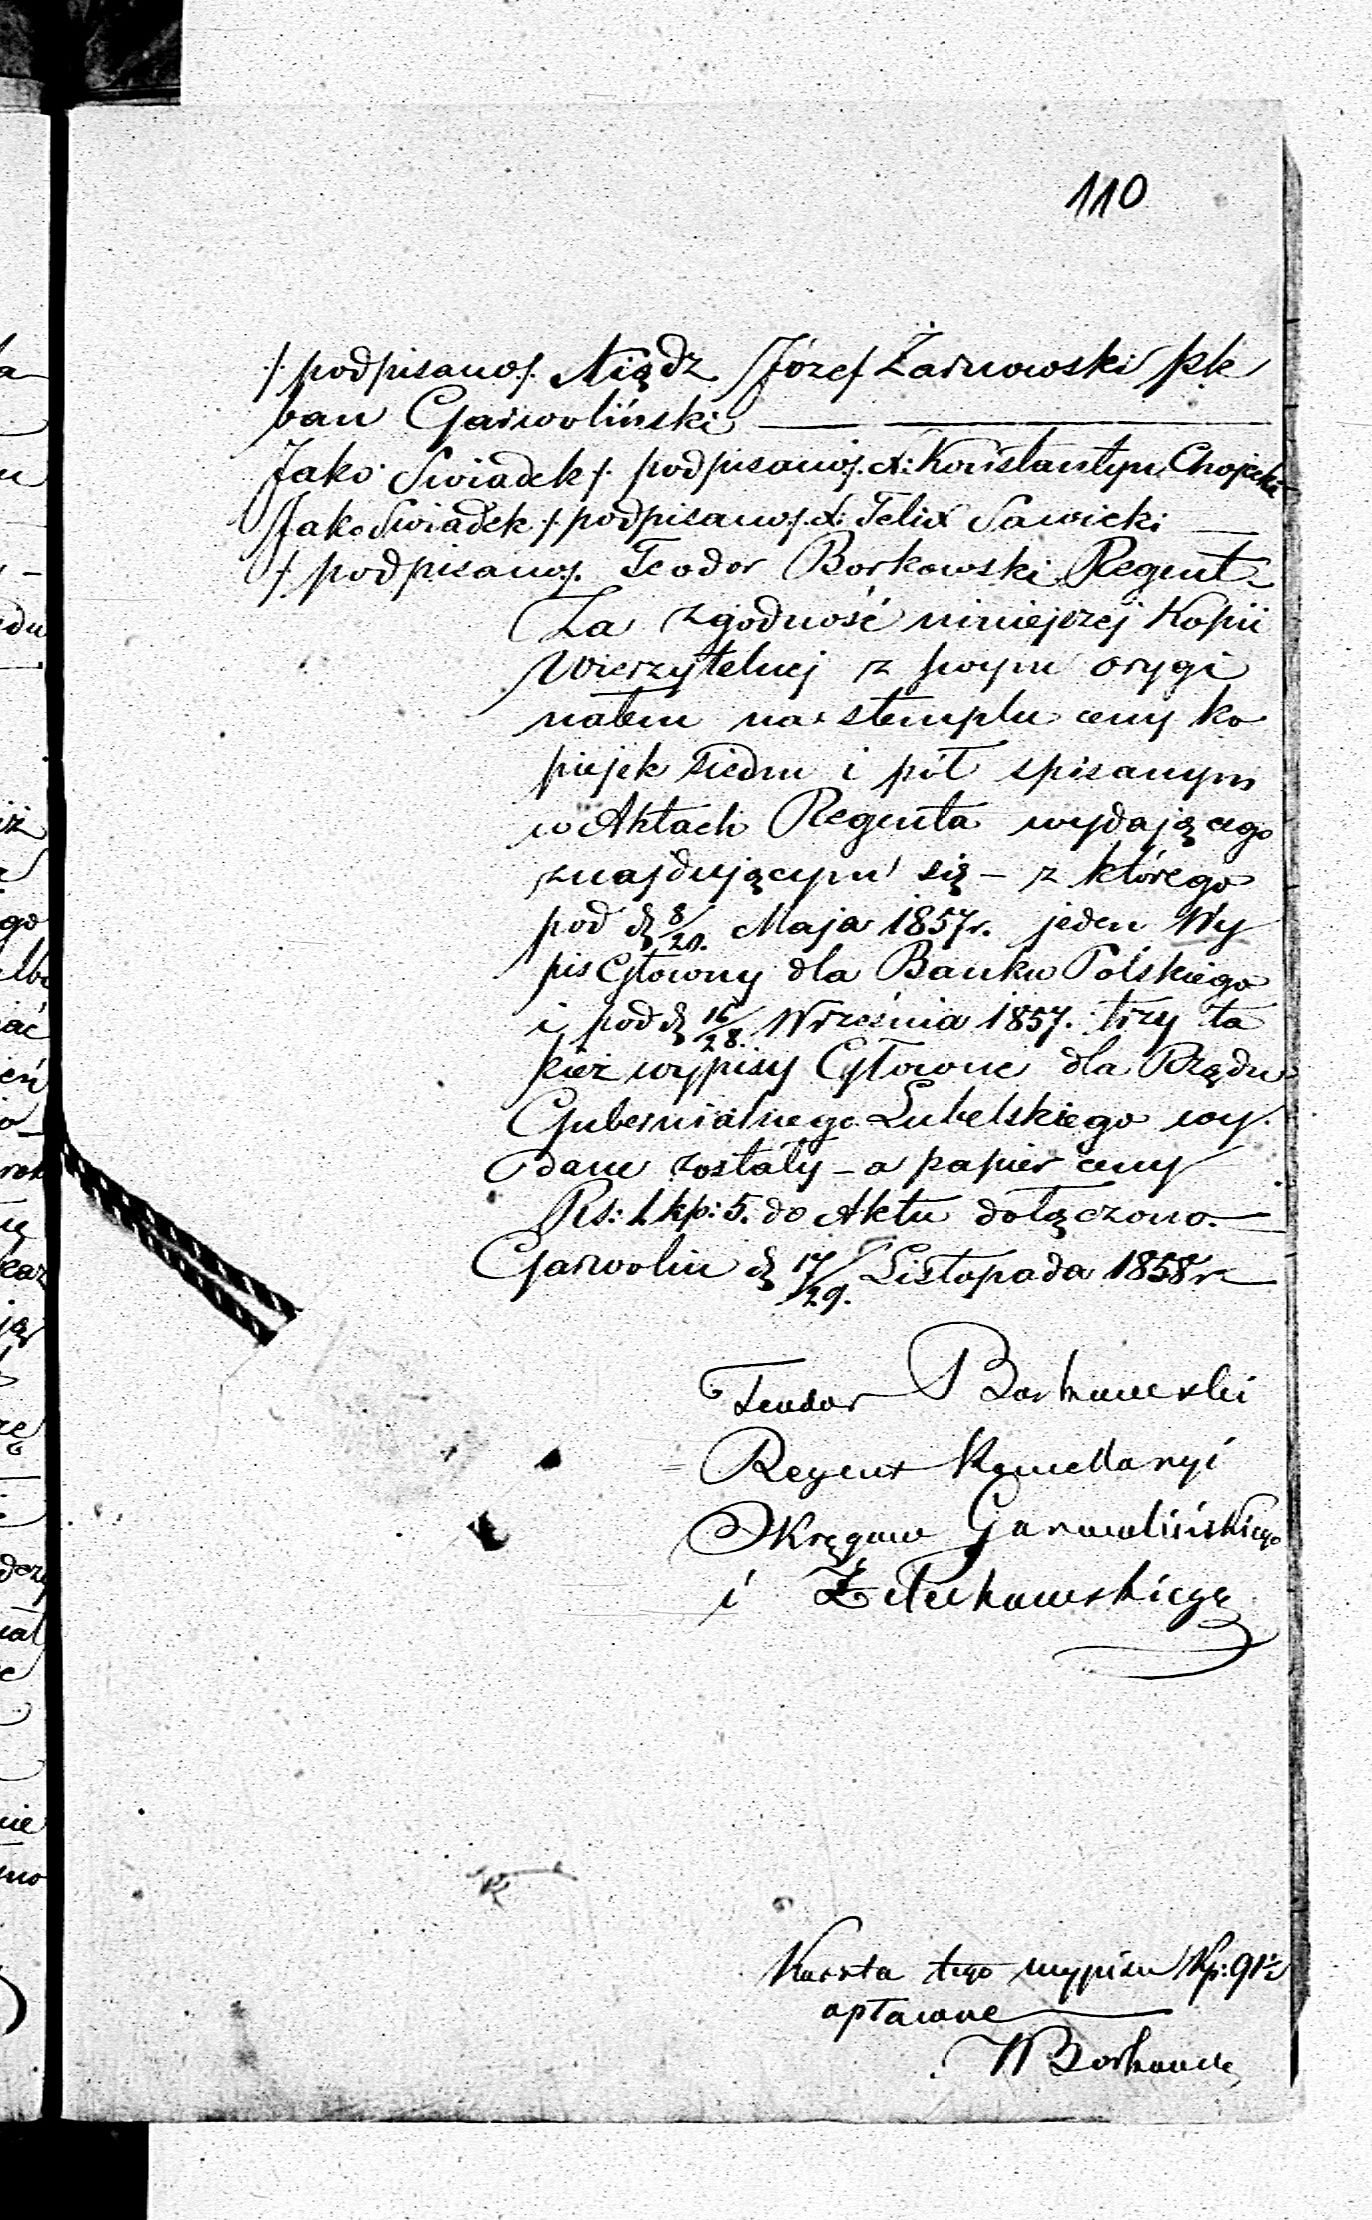 110
/: podpisano /. Xiądz Józef Żarnowski ple
ban Garwoliński
Jako Swiadek /: podpisano /. X: Konstantyn Chojecki
Jako Swiadek /: podpisano /. X: Felix Sawicki
/: podpisano /. Teodor Borkowski Regent
Za zgodność niniejszej Kopii
Wierzytelnej z swym orygi
nałem na stemplu ceny ko
piejek siedm i pół spisanym
w Aktach Regenta wydającego
znajdującym się – z którego
pod d 8/20. Maja 1857r. jeden Wy
pis Główny dla Banku Polskiego
i pod d 16/28. Września 1857. trzy ta
kież wypisy Główne dla Rządu
Gubernialnego Lubelskiego wy
dane zostały – a papier ceny
Rs: 1 kp: 5. do Aktu dołączono. –
Garwolin d 17/29. Listopada 1858r
Teodor Borkowski
Regent Kancellaryi
Okręgow Garwolińskiego
i Żelechowskiego
Koszta tego wypisu Kp: 91½
opłacone
Borkowski